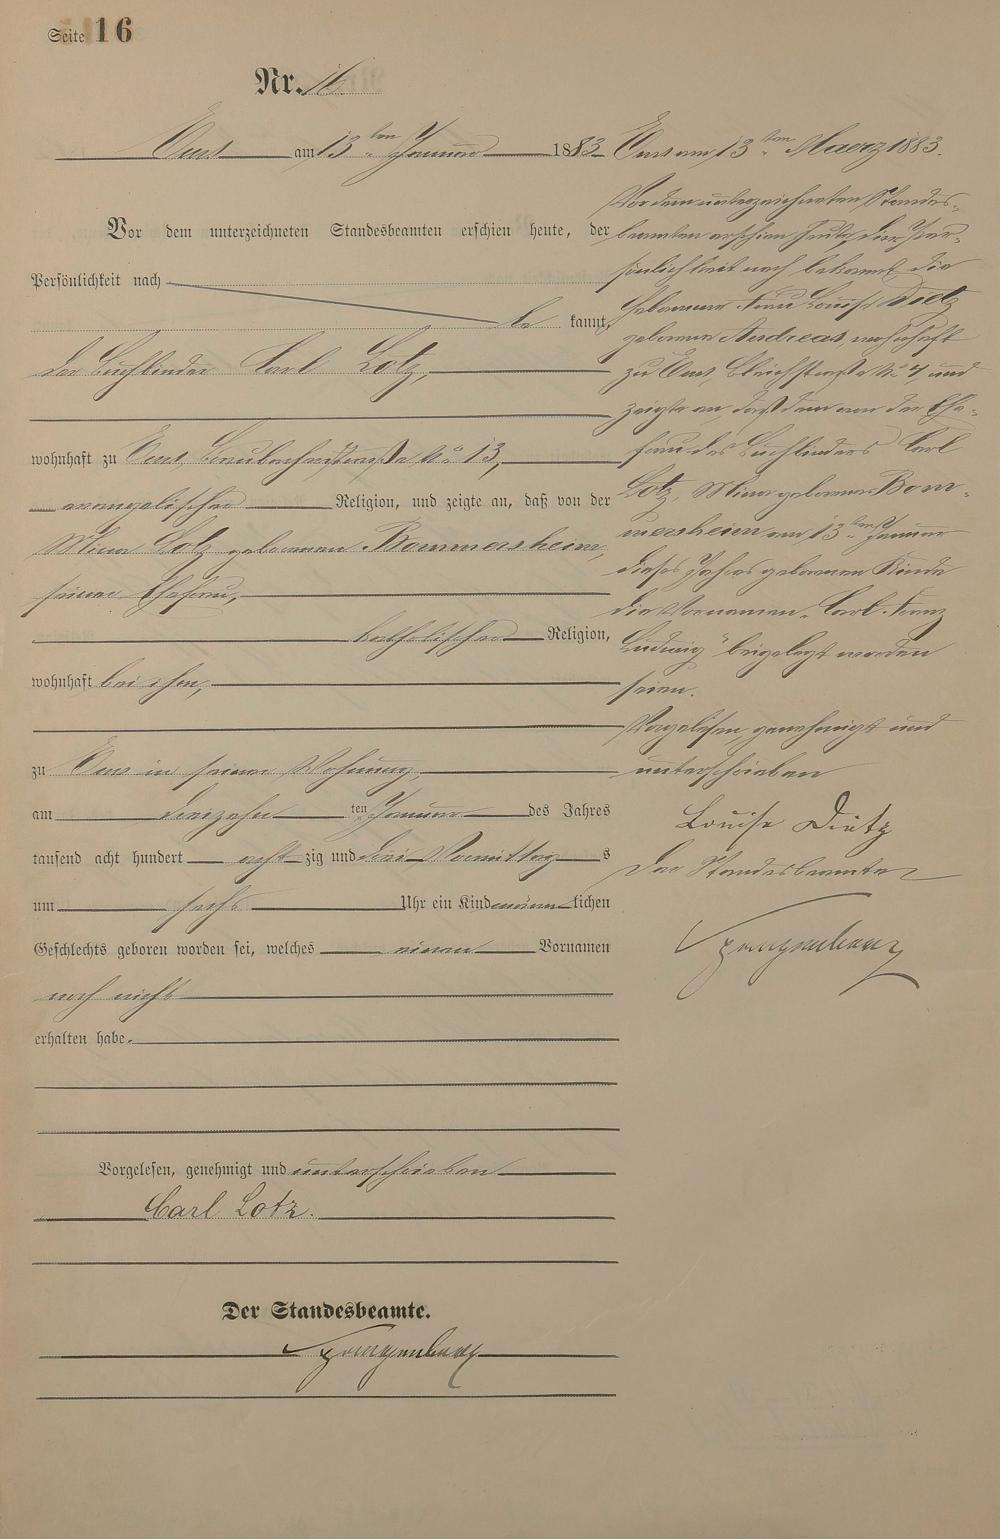 Seite 16
Nr. 16
Ems am 13ten Januar 1883
Vor dem unterzeichneten Standesbeamten erschien heute, der
Persönlichkeit nach
be kannt,
der Buchbinder Carl Lotz,
wohnhaft zu Ems, No 13,
evangelischer Religion, und zeigte an, daß von der
Mina Lotz geborenen Bommersheim,
seiner Ehefrau,
katholischer Religion,
wohnhaft bei ihm,
zu Ems in seiner Wohnung,
am dreizehn ten Januar des Jahres
tausend acht hundert acht zig und drei Vormittag s
um sechs Uhr ein Kind männ lichen
Geschlechts geboren worden sei, welches einen Vornamen
noch nicht
erhalten habe.
Vorgelesen, genehmigt und unterschrieben
Carl Lotz.
Der Standesbeamte.
Ems am 13ten Maerz 1883.
Vor dem unterzeichneten Standes-
beamten erschien heute, der Per-
sönlichkeit nach bekannt, die
Hebamme Frau Louise Dietz
geborene Andreas, wohnhaft
zu Ems, Bleichstraße No 7 und
zeigte an, daß dem von der Ehe-
frau des Buchbinders Carl
Lotz, Mina geborene Bom-
mersheim am 13ten Januar
dieses Jahres geborenen Kinde
die Vornamen „Carl Franz
Ludwig" beigelegt worden
seien.
Vorgelesen, genehmigt und
unterschrieben
Louise Dietz
Der Standesbeamte